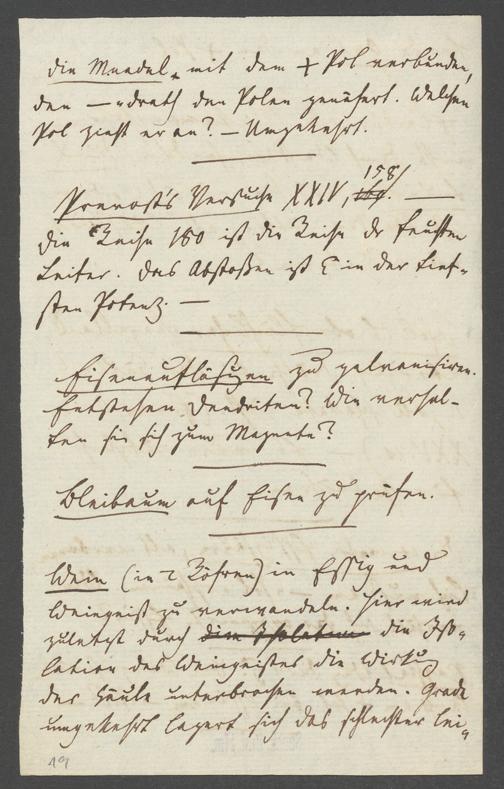 die Mundel, mit dem + Pol verbunden,
den — drath den Polen genähert. Welchen
Pol zieht er an? — Umgekehrt.
Prevost's Versuche XXIV, 158/
— die Reihe 180 ist die Reihe der feuchten
Leiter. Das Abstoßen ist in der tief-
sten Potenz. —
Eisenauflösungen zu galvanisiren.
Entstehen Dendriten? Wie verhal-
ten sie sich zum Magnete?
Bleibaum auf Eisen zu prüfen.
Wein (in 2 Röhren) in Essig und
Weingeist zu verwandeln. Hier wird
zuletzt durch die Iso-
lation des Weingeistes die Wirkung
der Säule unterbrochen werden. Grade
umgekehrt lagert sich das schlechter lei-
19